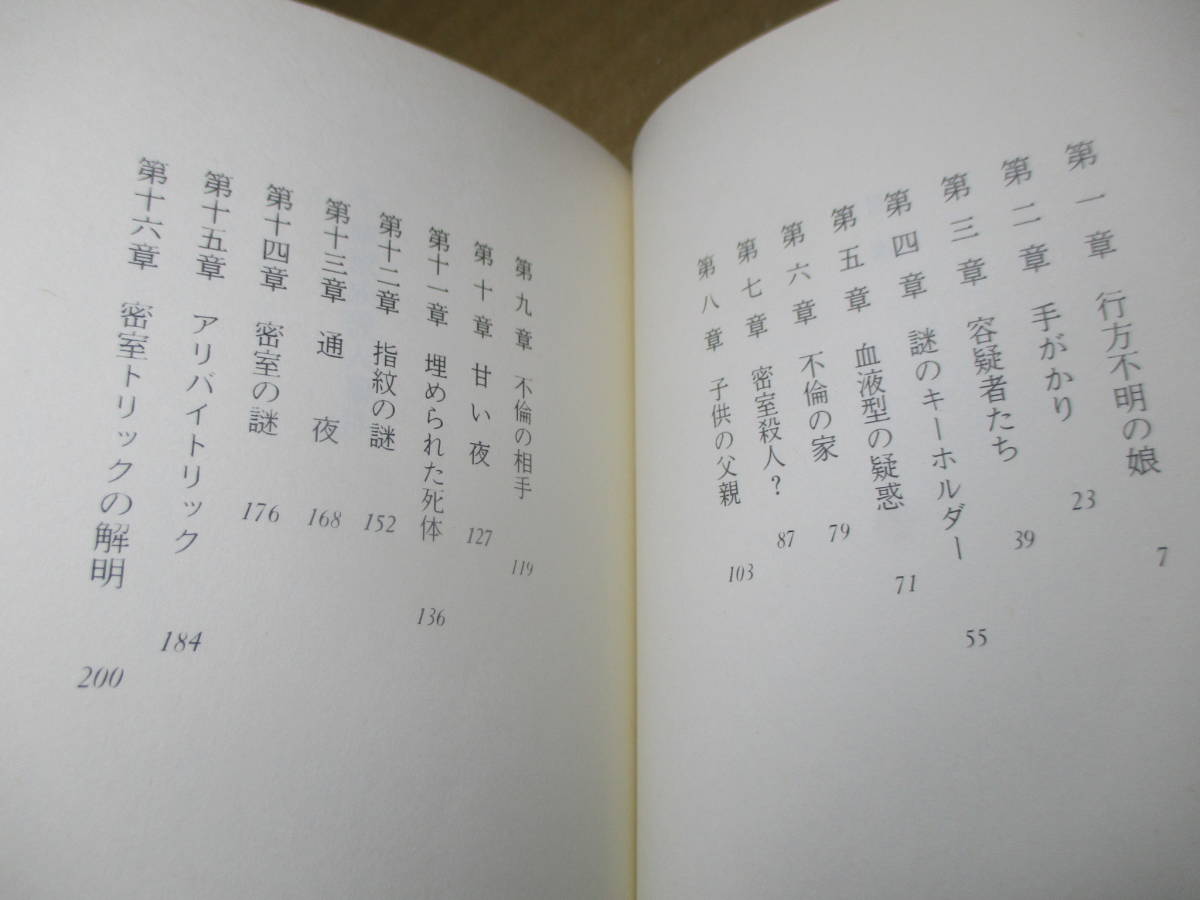 第一章 行方不明の娘 7
第二章 手がかり 23
第三章 容疑者たち 39
第四章 謎のキーホルダー 55
第五章 血液型の疑惑 71
第六章 不倫の家 79
第七章 密室殺人? 87
第八章 子供の父親 103
第九章 不倫の相手 119
第十章 甘い夜 127
第十一章 埋められた死体 136
第十二章 指紋の謎 152
第十三章 通夜 168
第十四章 密室の謎 176
第十五章 アリバイトリック 184
第十六章 密室トリックの解明 200